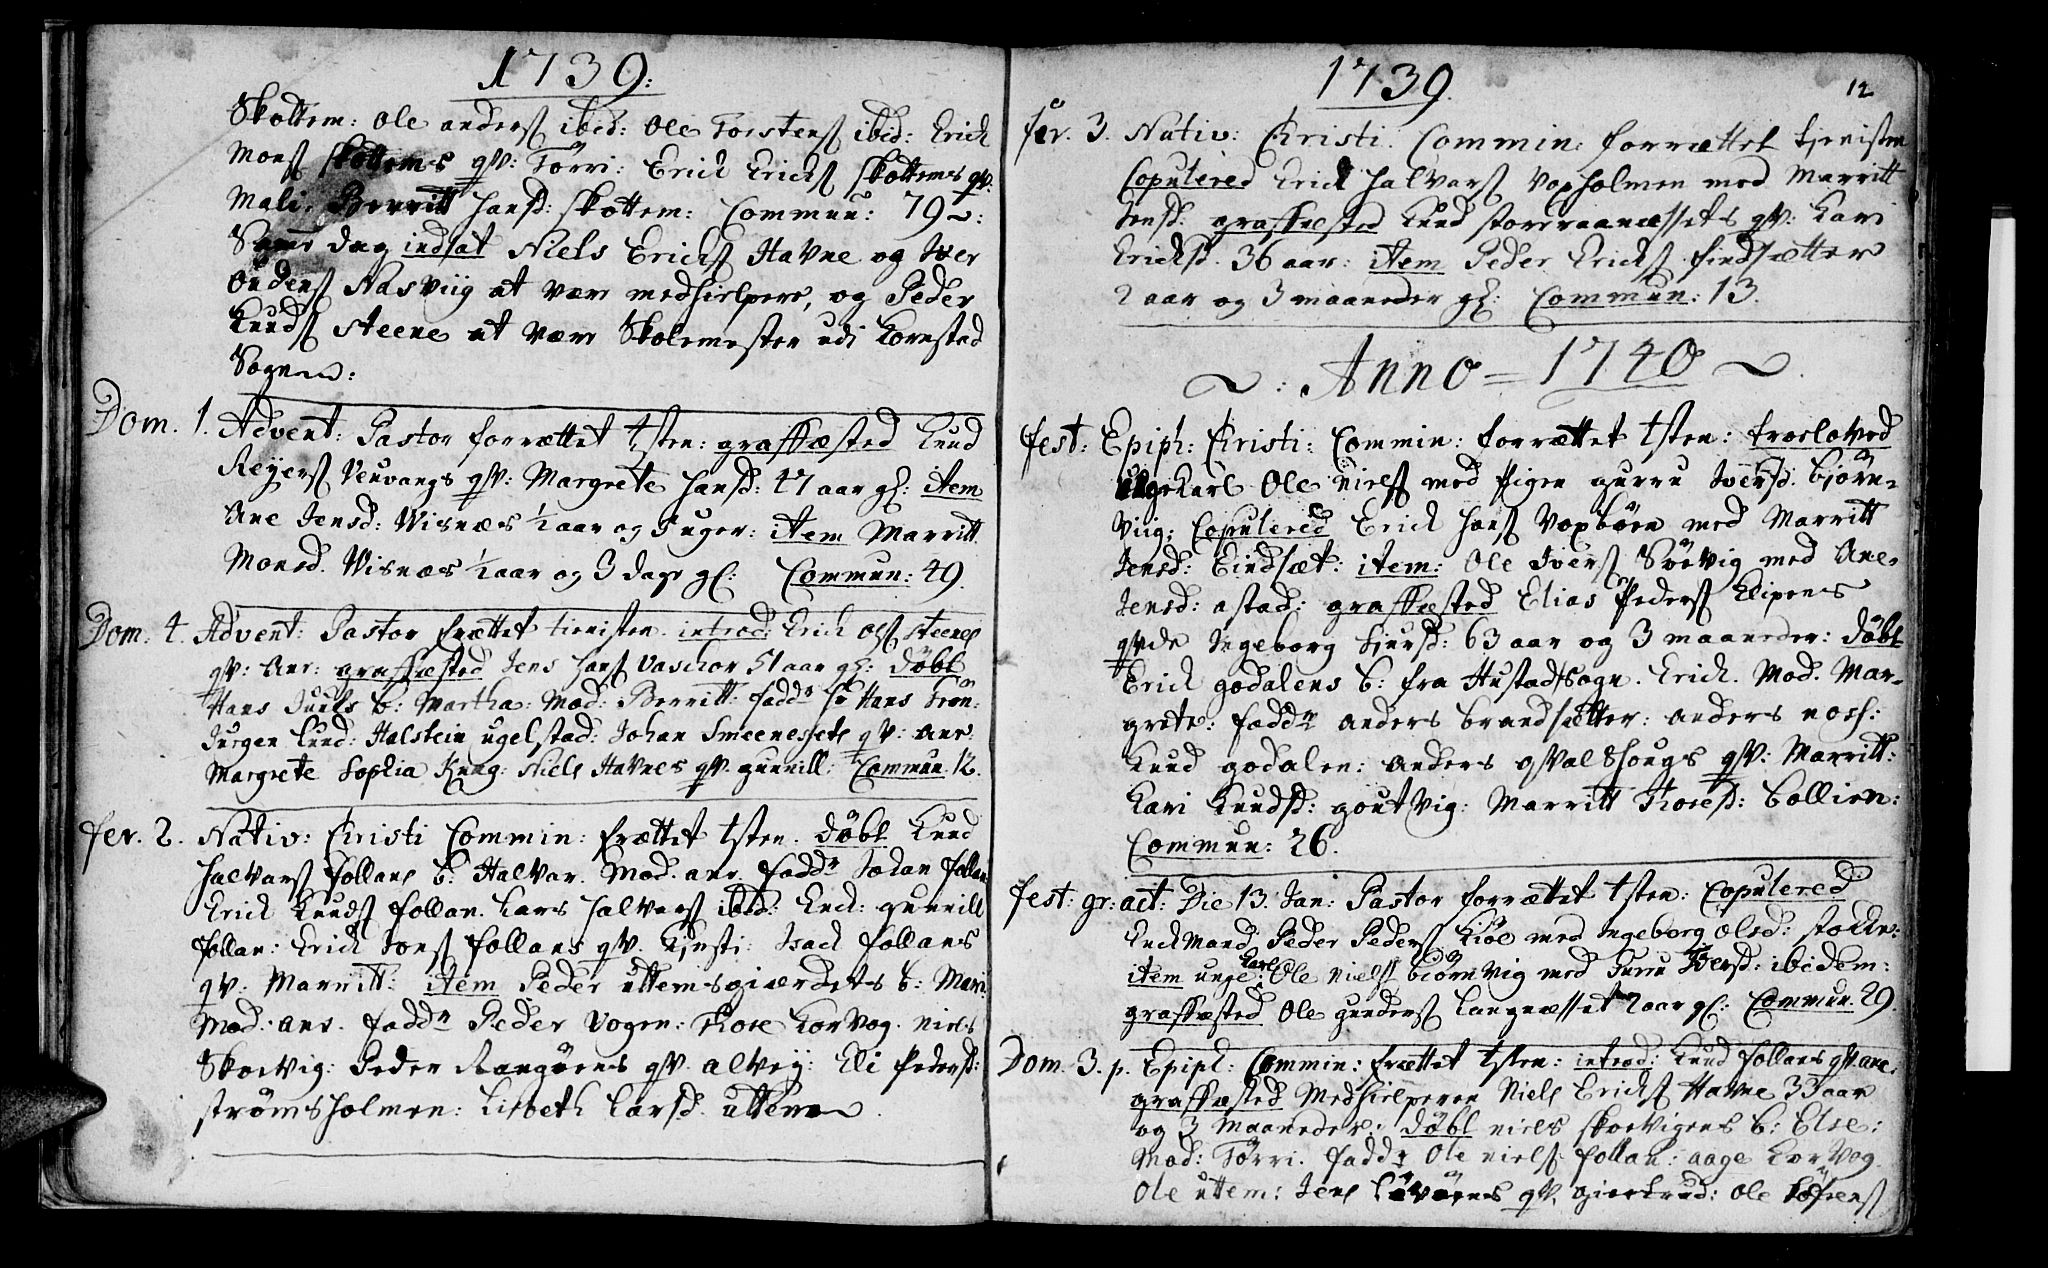 1739:
Skottem: Ole anders ibid: Ole Torstens ibid: Erich
Mons Skottems qv: Törri: Erich Erichs Skottems qv:
Mali: Berritt hansd: skottem: Commun: 79~:
Samme dag indsat Niels Erichs Havne og Iver
Endens Nasviig at være medhielpere, og Peder
Knuds Steene at være Skolemester udi Kornstad
Sognen:
Dom. 1. Advent: Pastor forrættet tsten: graffæsted Knud
Reyers Veuvangs qv: Margrete hansd: 47 aar gl: item
Ane Jensd: Wisnæs ½ aar og 3 uger: item Marritt
Monsd. Wisnæs ½ aar og 3 dage gl: Commun: 49.
Dom. 4. Advent: Pastor frættet tienisten. introd: Erich Ols Steenes
qv: Ane: graffæsted Jens hans Vaschor 51 aar gl: döbt
Hans Juuls b: Martha: Mod: Berritt: fadd.r Hr Hans Trön:
Jurgen Lund: Halstein ugelstad: Johan Smeenesets qv: Ane
Margrete Sophia Krug: Niels Havnes qv. gunnill: Commun 12.
fer. 2. Nativ: Christi Commin: frættet tsten. döbt Knud
Halvars follans b: Halvor. Mod. ane. fadd.r Johan follan
Erich Knuds follan. Lars halvars ibid: Enck: gunnild
follan: Erich Jons follans qv. Kirsti: Isach follans
qv: Marritt: item Peder uttemsgierdets b: Mari
Mod: ane. fadd.r Peder Vogen: Thore Korvog. niels
Skoevig: Peder Rangöens qv. alvey: Eli Pedersd:
strömsholmen: Lisbeth Larsd. uttem
1739. 12
fer. 3. Nativ: Christi. Commin: forrættet tjenisten
Copulered Erich halvars Voxholmen med Marritt
Jensd: graffæsted Knud storraanæssets qv: Kari
Erichsd. 36 aar: item Peder Erichs findsætter
2 aar og 3 maaneder gl: Commun: 13.
~: Anno = 1740 ~.
fest: Epiph: Christi: Commin: forrættet tsten: troeloved
unge Karl Ole Niels med Pigen guruu Iversd. Björn-
viig: Copulered Erich hans Voxböen med Marritt
Jensd: Eindset: item: Ole Ivers Sörvig med Ane
Jensd: astad: graffæsted Elias Peders Klipens
qvde Ingeborg Siursd: 63 aar og 3 maaneder: döbt
Erich godalens b: fra Hustad Sogn. Erich. Mod. Mar-
grete: fadd.r anders brandsætter: anders noss:
Knud godalen: anders qvalshougs qv: Marritt:
Kari Knudsd: goutvig: Marritt Thoresd: Bollien:
Commun: 26.
fest: gr: act: Die 13. Jan: Pastor forrættet tsten: Copulered
Enckmand Peder Peders Kiöe med Ingeborg Olsd: stocke:
item unge Karl Ole niels biörnvig med Guru Iversd: ibidem:
graffæsted Ole gunders Langnæsset 2 aar gl: Commun. 29.
Dom. 3. p. Epiph: Commin: frættet tsten: introd: Knud follans qv. ane.
graffæsted Medhielperen Niels Erichs Havne 33 aar
og 3 Maaneder: döbt niels skoevigens b: Else:
Mod: Törri. fadd.r Ole niels follan: aage Korvog
Ole uttem: Jens Lövöens qv. giertrud: Ole